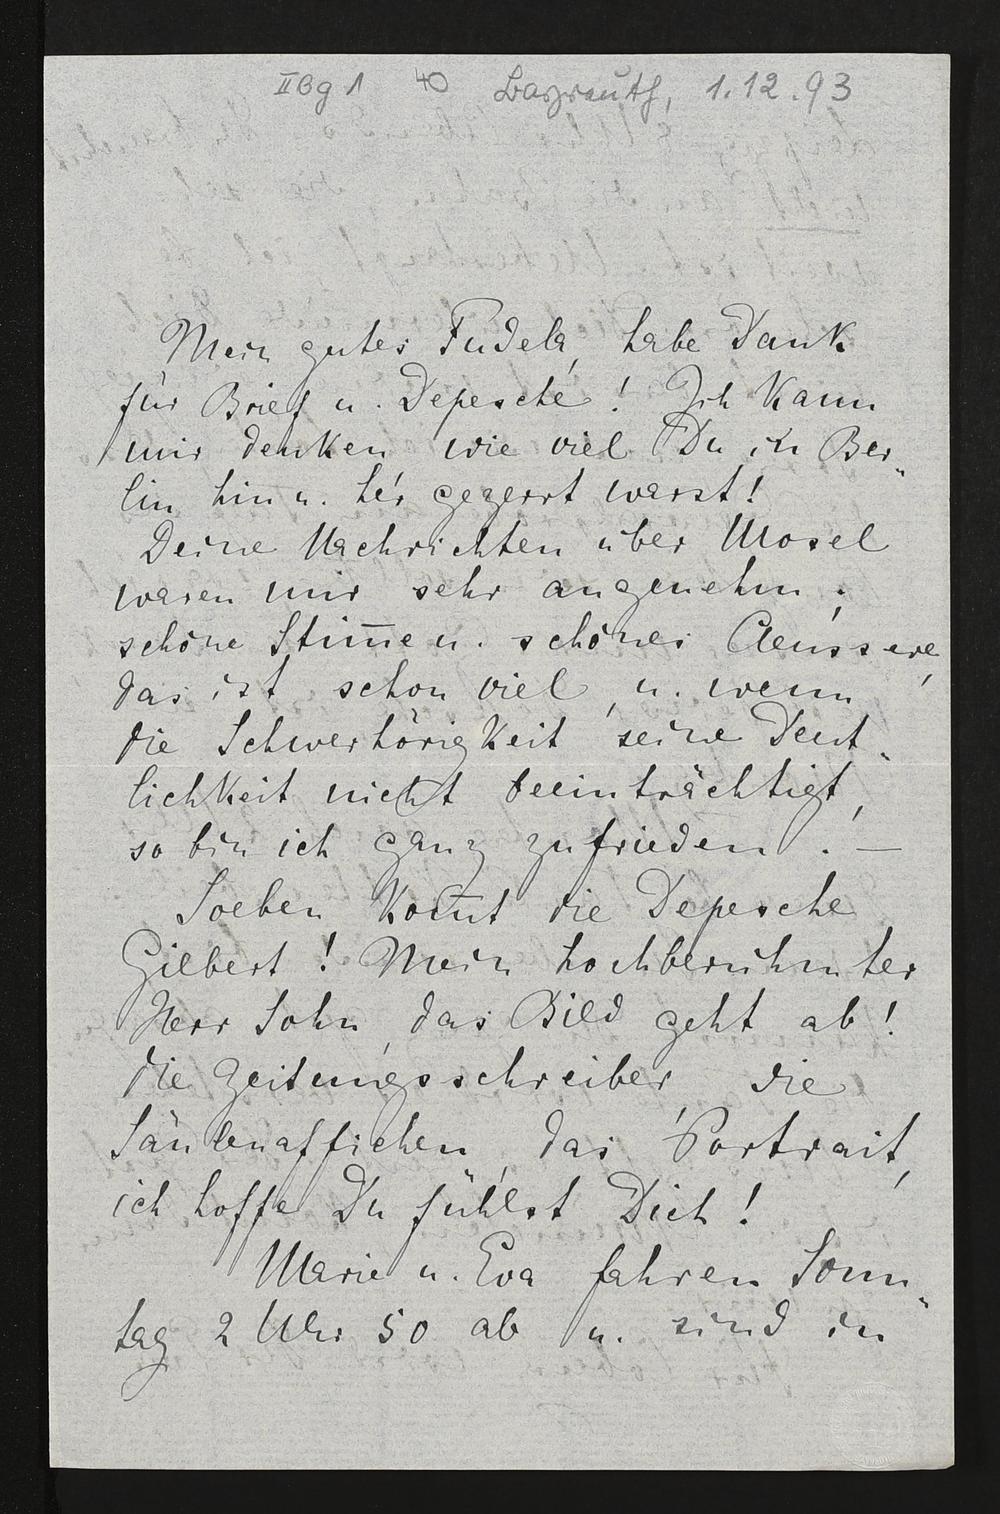 II Bg 1 40 Bayreuth, 1.12.93
Mein gutes Fudela, habe Dank
für Brief u. Depesche! Ich kann
mir denken wie viel Du in Ber-
lin hin u. her gezerrt warst!
Deine Nachrichten über Mosel
waren mir sehr angenehm;
schöne Stim̅e u. schönes Aeussere,
das ist schon viel, u. wenn
die Schwerhörigkeit seine Deut-
lichkeit nicht beeinträchtigt,
so bin ich ganz zufrieden. —
Soeben kom̅t die Depesche
Gilbert! Mein hochberühmter
Herr Sohn, das Bild geht ab!
Die Zeitungsschreiber, die
Säulenaffichen, das Portrait,
ich hoffe Du fühlst Dich!
Marie u. Eva fahren Sonn-
tag 2 Uhr 50 ab u. sind in